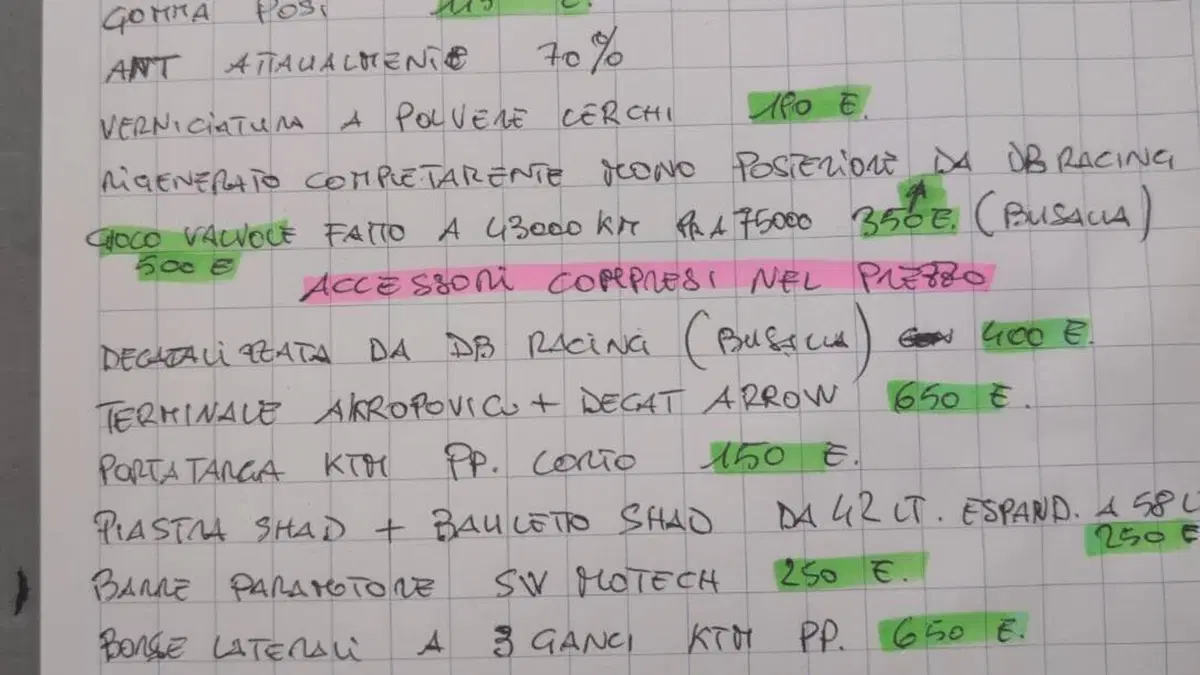 GOMMA POST 115 E.
ANT ATTAUALMENTE 70%
VERNICIATURA A POLVERE CERCHI 190 E.
RIGENERATO COMPLETAMENTE MONO POSTERIORE DA DB RACING
GIOCO VALVOLE FATTO A 43000 KM A 75000 350 E. (BUSALLA)
500 E
ACCESSORI COMPRESI NEL PREZZO
DECATALIZZATA DA DB RACING (BUSALLA) 400 E.
TERMINALE AKROPOVIC + DECAT ARROW 650 E.
PORTATARGA KTM PP. CORTO 150 E.
PIASTRA SHAD + BAULETTO SHAD DA 42 LT. ESPAND. A 58 L
250 E
BARRE PARAMOTORE SW MOTECH 250 E.
BORSE LATERALI A 3 GANCI KTM PP. 650 E.